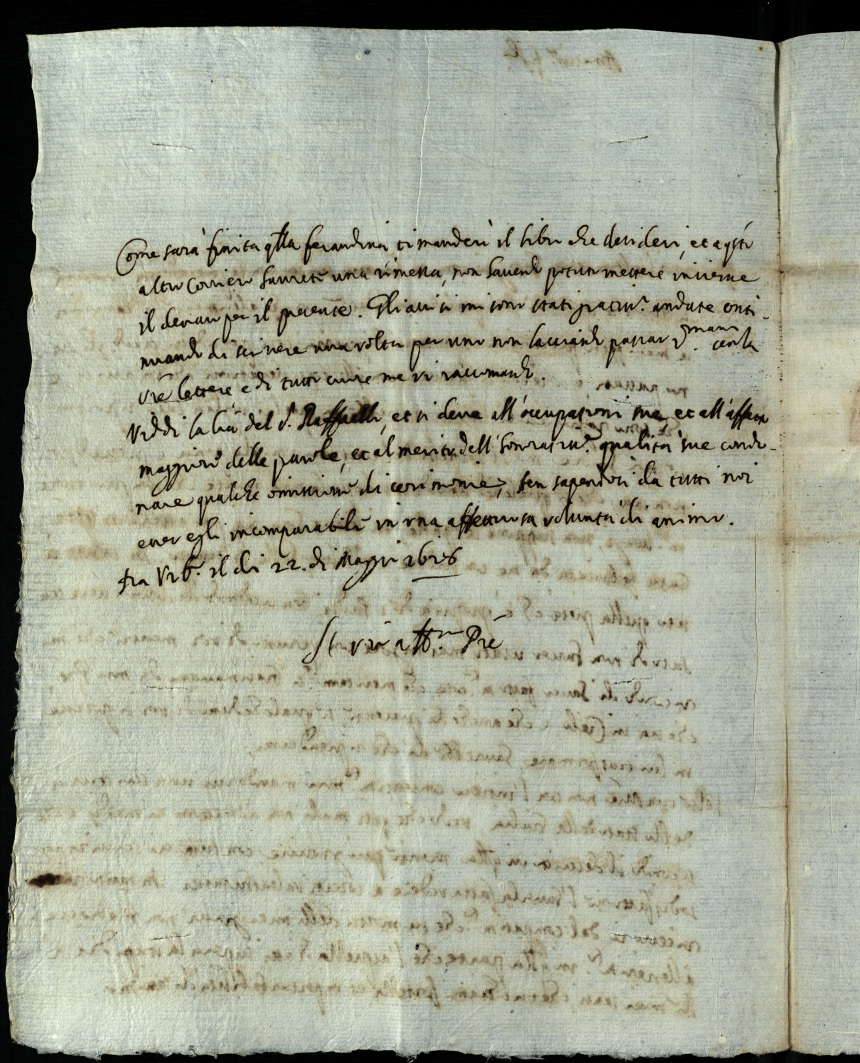 Come sarà finita qlla ferandina ti manderò il libro che desideri, et a qsto
altro corriero havrete una rimessa, non havendo potuto mettere insieme
il denaro per il presente. Gli avisi mi sono stati gratiss.i andate conti-
nuando di scrivere una volta per uno non lasciando passar 7mana senza
vre lettere e di tutto cuore me vi raccomando.
Viddi la lra del S. Raffaelli, et si deve all'occupationi sue, et all'
maggiori delle parole, et al merito dell' qualità sue condo-
nare qualche omissione di cerimonie, ben sapendosi da tutti noi
esser egli incomparabile in una affettuosa volontà di animo.
Fra Urb.o il di 22. di Maggio 1628
Il vro Pre